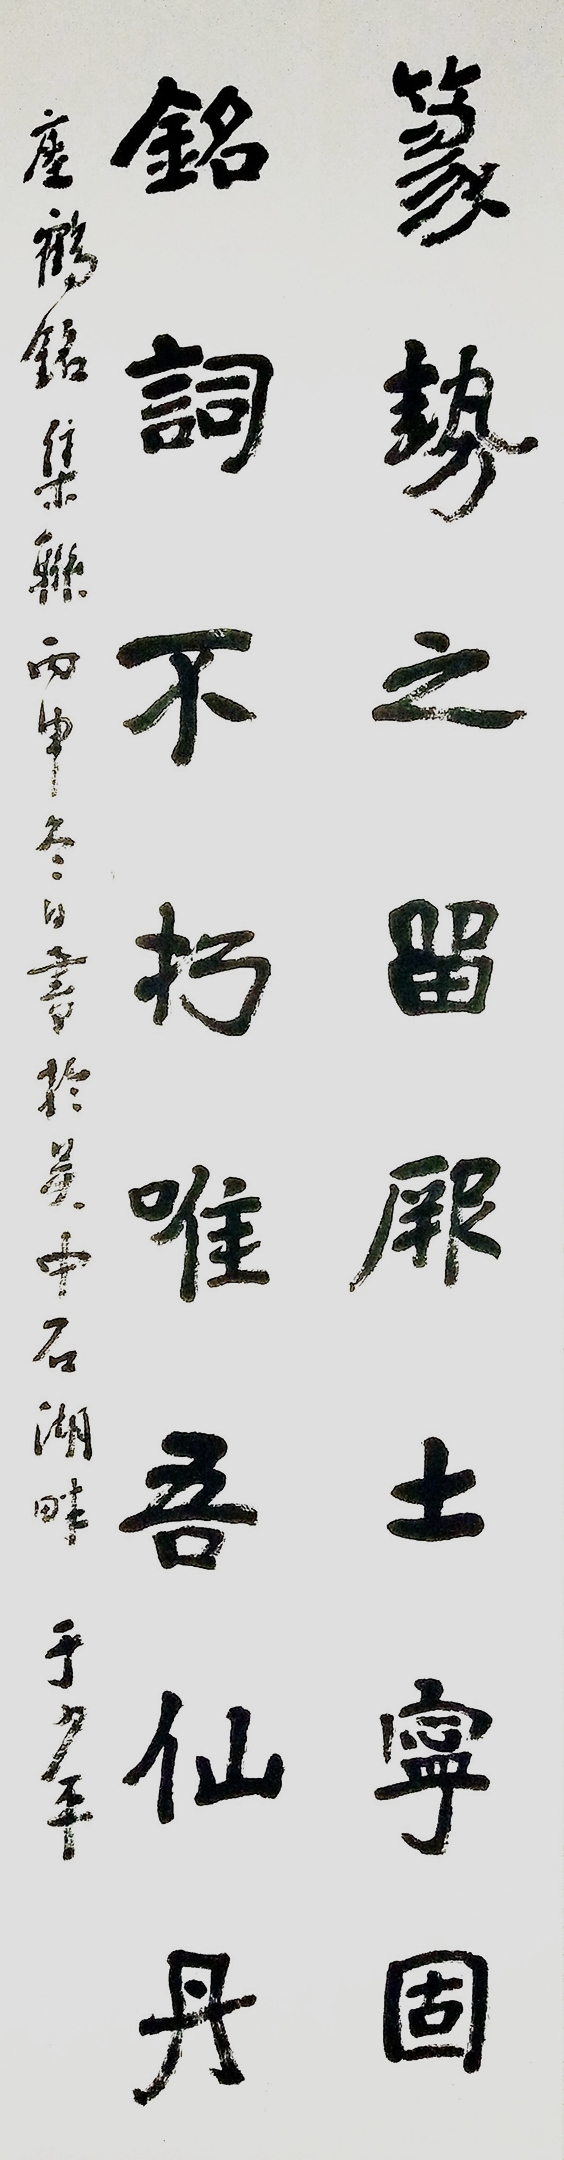 篆勢之留厥土寧固
銘詞不朽唯吾仙丹
瘞鶴銘集聯丙申冬日書於吳中石湖畔 于少平